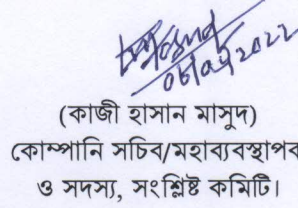 ০৮/০৫/২০২২
(কাজী হাসান মাসুদ)
কোম্পানি সচিব/মহাব্যবস্থাপক
ও সদস্য, সংশ্লিষ্ট কমিটি।